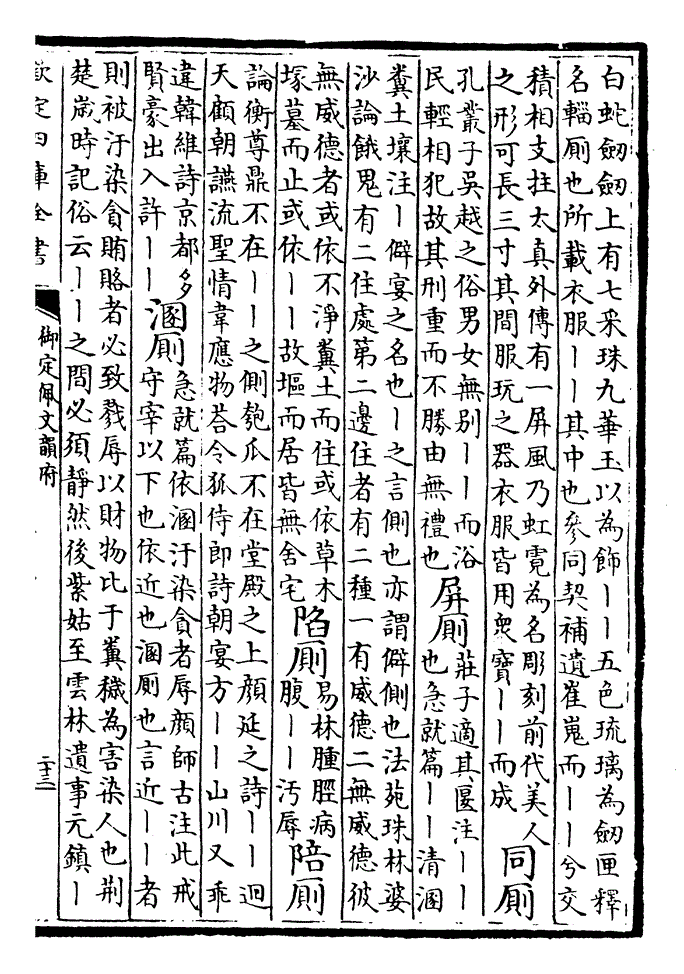 白蛇劒劒上有七采珠九華玉以為飾丨丨五色琉璃為劒匣釋
名輜厠也所載衣服丨丨其中也參同契補遺崔嵬而丨丨兮交
積相支拄太真外傳有一屏風乃虹霓為名彫刻前代美人
之形可長三寸其間服玩之器衣服皆用衆寶丨丨而成
同厠
孔叢子吳越之俗男女無别丨丨而浴
民輕相犯故其刑重而不勝由無禮也
屏厠
莊子適其偃注丨丨
也急就篇丨丨清溷
糞土壤注丨僻宴之名也丨之言側也亦謂僻側也法苑珠林婆
沙論餓鬼有二住處第二邊住者有二種一有威德二無威德彼
無威德者或依不淨糞土而住或依草木
塚墓而止或依丨丨故堀而居皆無舍宅
陷厠
易林腫脛病
腹丨丨汚辱
陪厠
論衡尊鼎不在丨丨之側匏瓜不在堂殿之上顔延之詩丨丨迴
天顧朝讌流聖情韋應物荅令狐侍郎詩朝宴方丨丨山川又乖
違韓維詩京都多
賢豪出入許丨丨
溷厠
急就篇依溷汙染貪者辱顔師古注此戒
守宰以下也依近也溷厠也言近丨丨者
則被汙染貪賄賂者必致戮辱以財物比于糞穢為害染人也荆
楚嵗時記俗云丨丨之間必須靜然後紫姑至雲林遺事元鎮丨
欽定四庫全書
御定佩文韻府
二十三